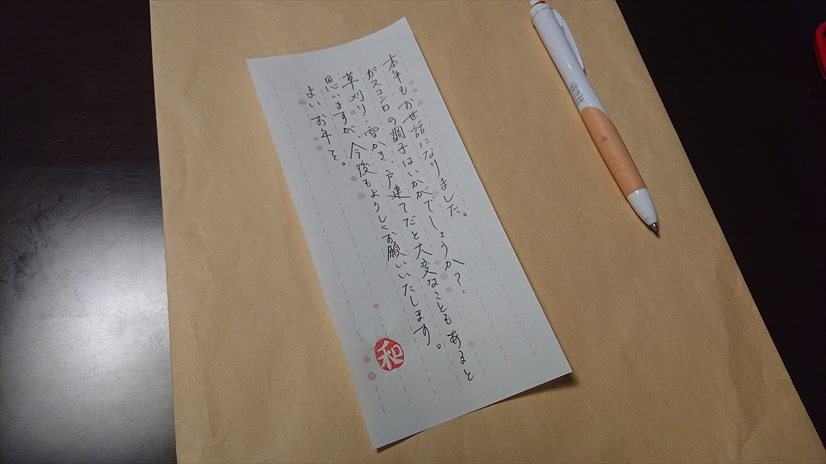 本年もお世話になりました。
ガスコンロの調子はいかがでしょうか？
草刈り、雪かき、戸建てだと大変なこともあると
思いますが、今後もよろしくお願いいたします。
よいお年を。
和